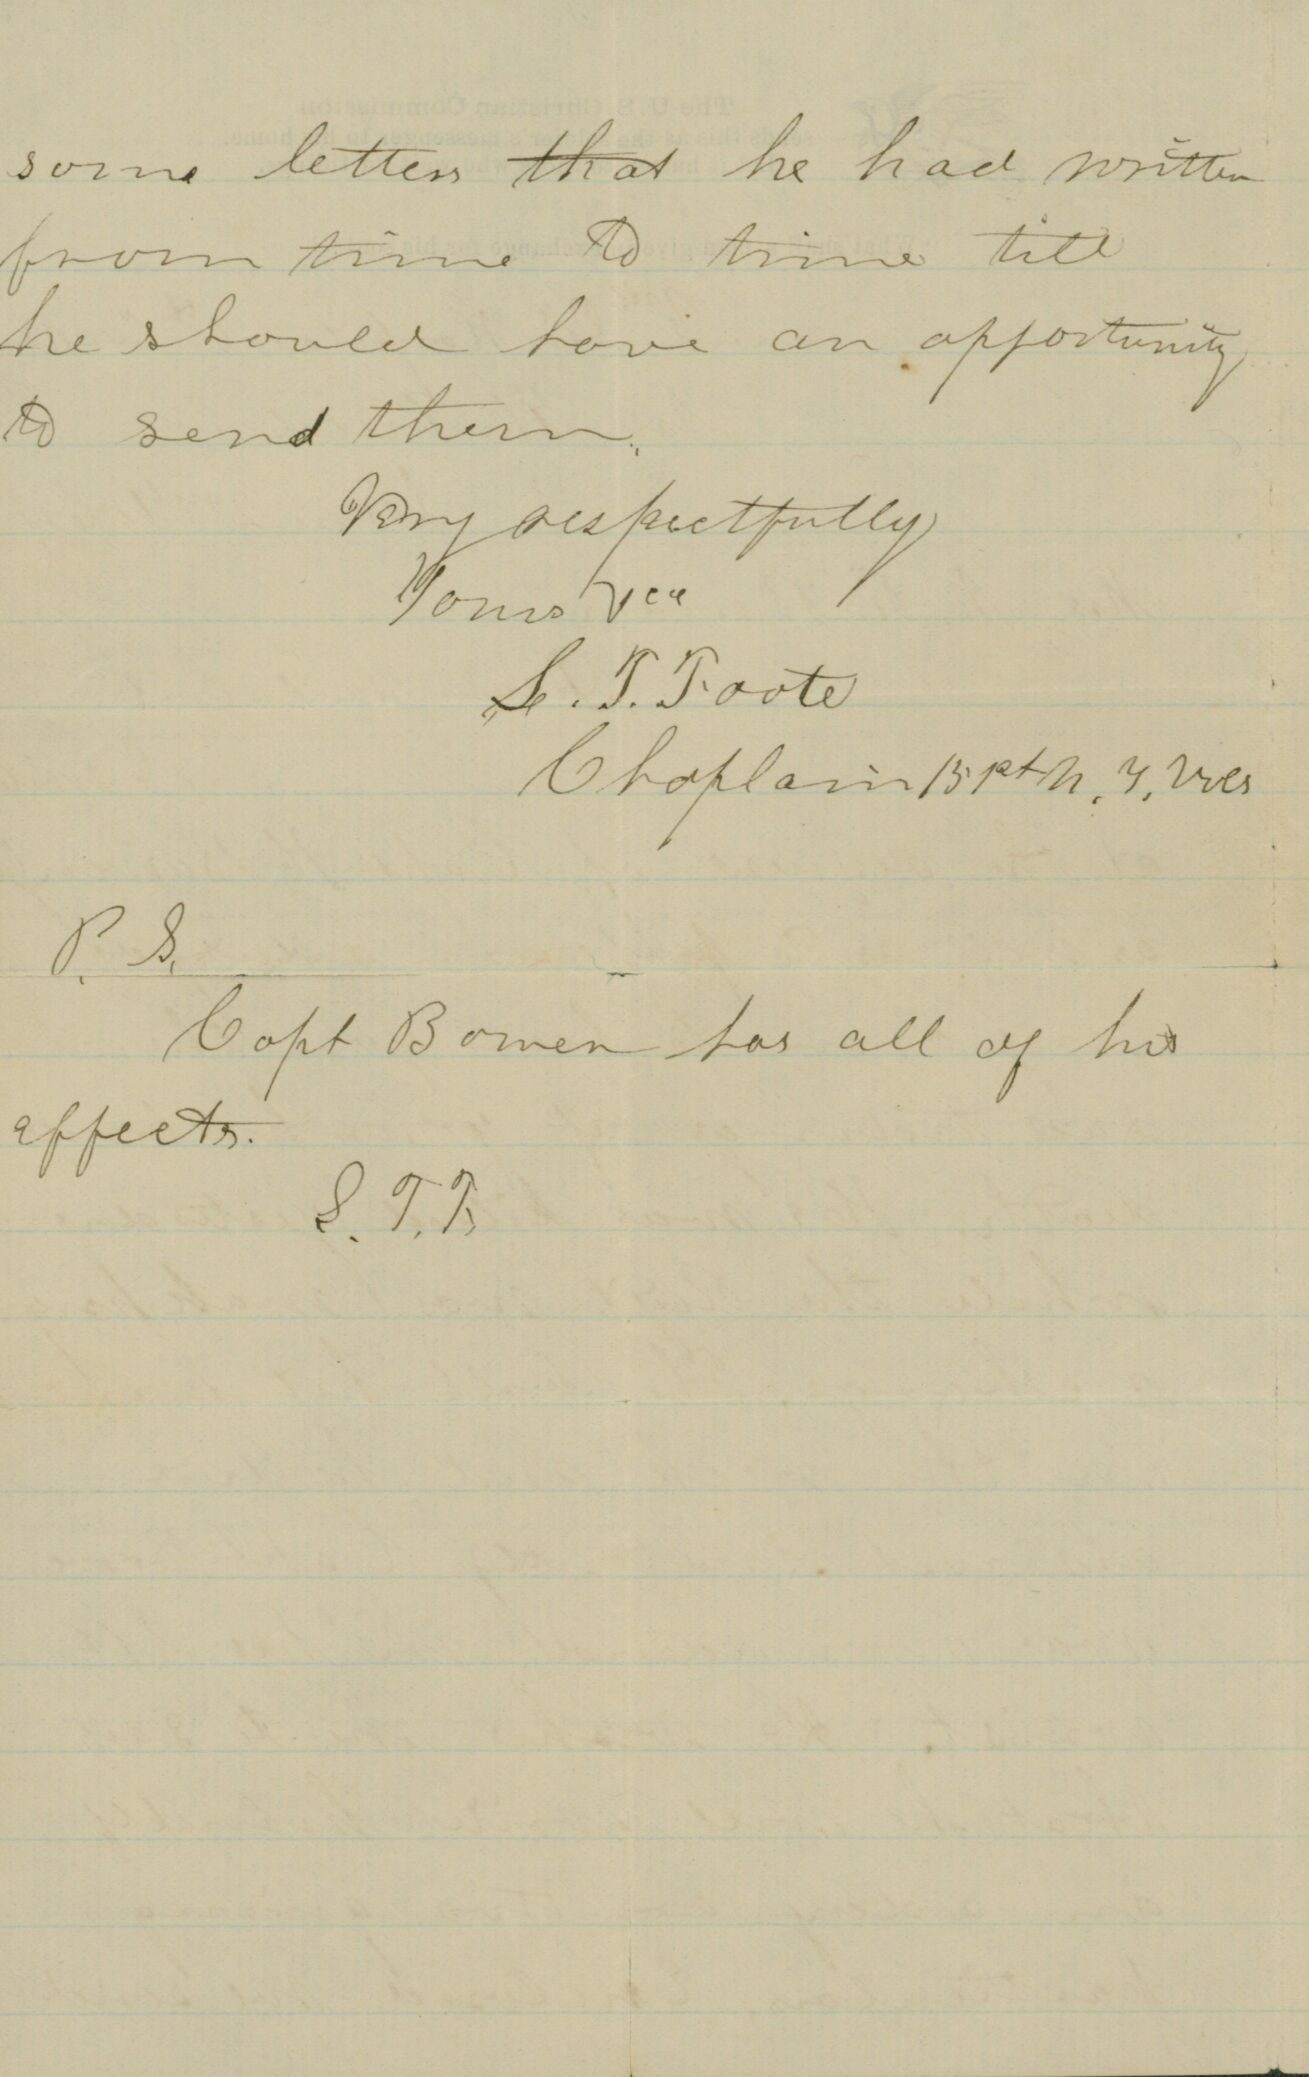 some letters that he had written
from time to time till
he should have an opportunity
to send them.
Very respectfully
Yours &ca
S. T. Foote
Chaplain 151st N. Y. Vols
P. S.
Capt Bowen has all of his
effects.
S. T. F.